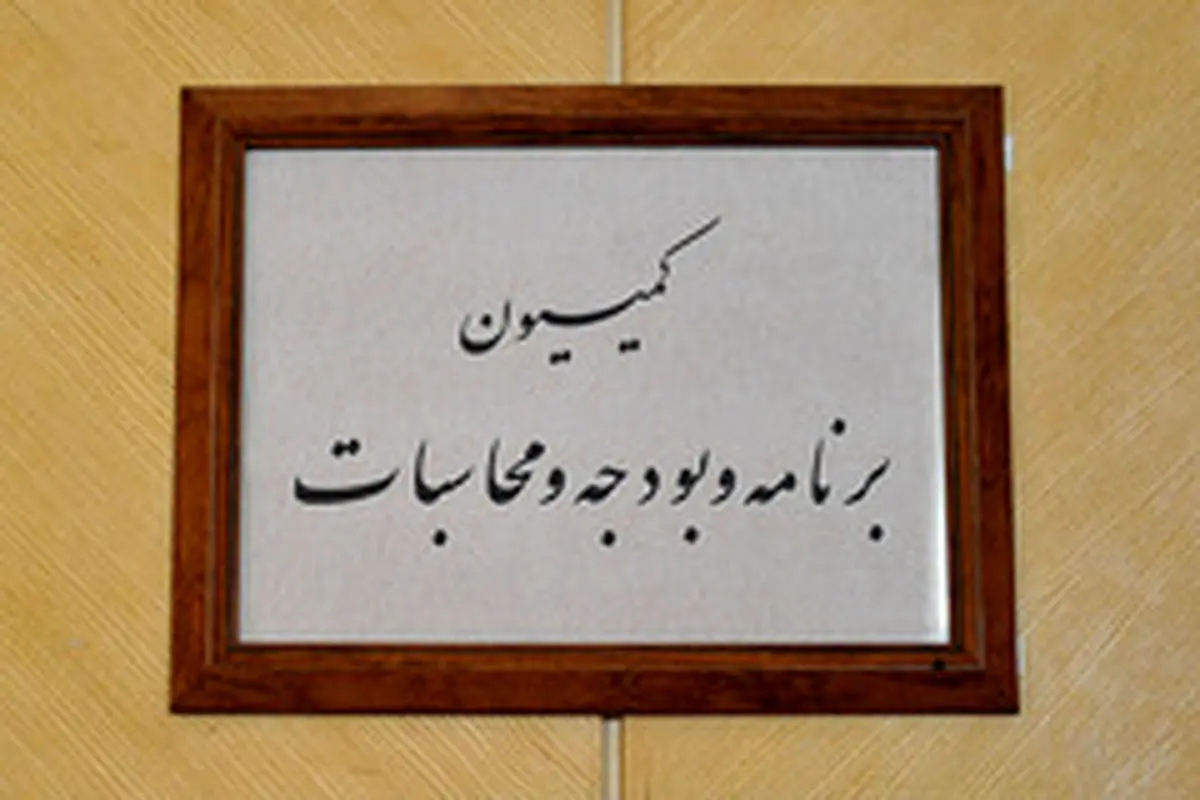 کمیسیون
برنامه و بودجه و محاسبات